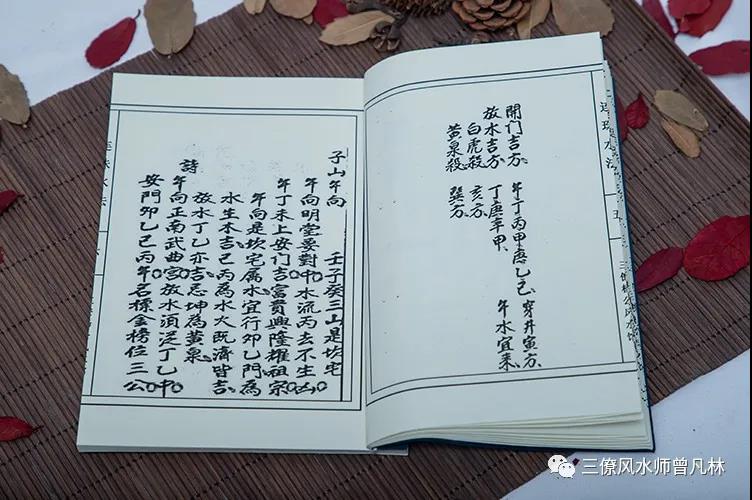 開门吉方 午丁丙甲庚乙己、穿井寅方、
放水吉方 丁庚辛甲、 午水宜来、
白虎殺 亥方、
黄泉殺、 巽方、
子山午向 壬子癸三山是坎宅
午向明堂要對中。水流丙去不生凶。
午丁未上安门吉。富貴興隆耀祖宗。
午向是坎宅属水宜行卯乙門為
水生木吉。己丙為水火既濟皆吉。
放水丁乙亦吉。忌坤為黄泉。
詩
午向正南武曲宫。放水须淀丁乙中。
安門卯乙己丙午。名標金榜位三公。
三僚风水师曾凡林